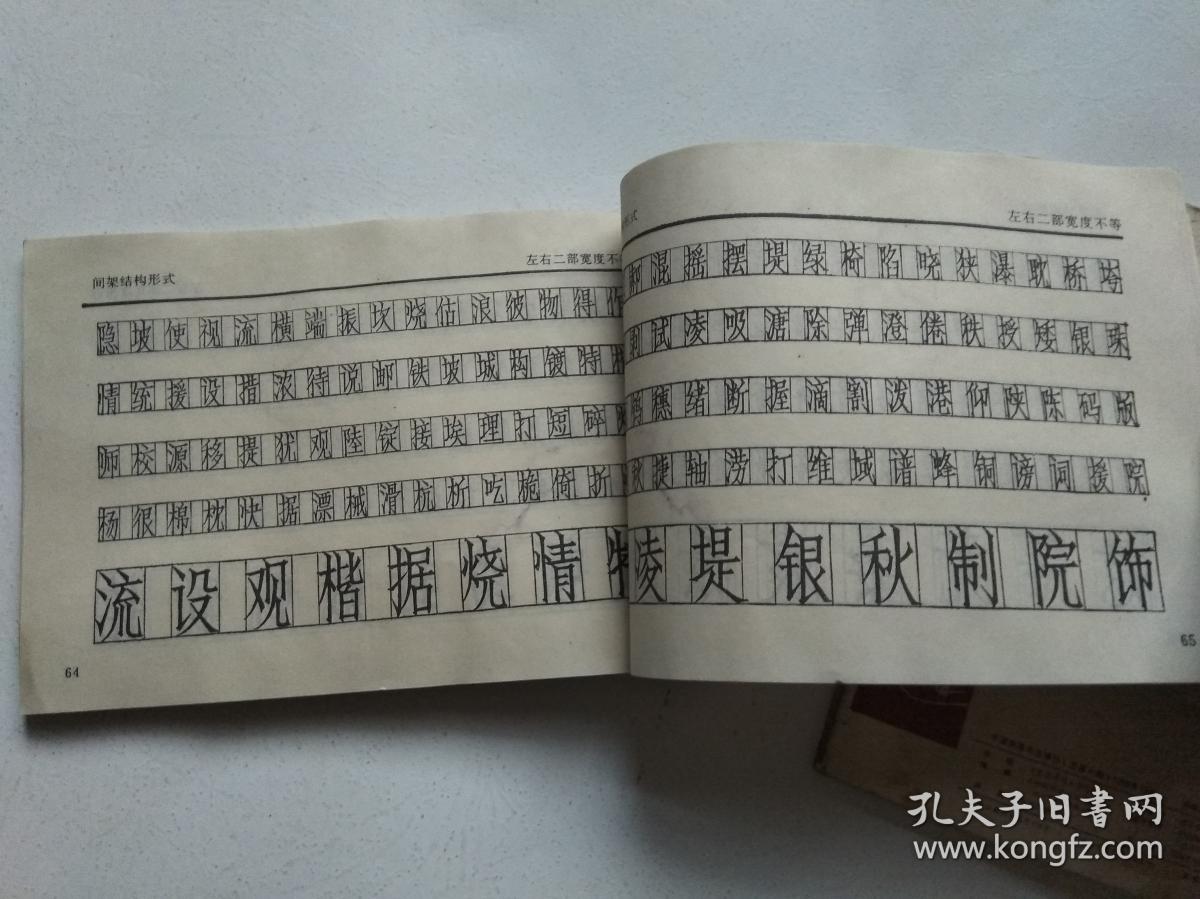 间架结构形式 左右二部宽度不
隐坡使视流横端振坎烧估浪彼物得作
情统援设措淡待说邮铁坡城构镀特
师校源移提犹观陸锭接埃理打短碎
杨很棉枕快据漂械滑杭析吃脆倚折
流设观楷据烧情特
64
形式 左右二部宽度不等
混摇摆堤绿椅陷晓狭瀑耽桥垮
刺试凌吸溏除弹澄倦秩授矮银珠
鹤穗绪断握滴割泼港仰陕陈码版
秋捷轴涝打维域谱蜂铜谤词援院
凌堤银秋制院饰
65
孔夫子旧书网
www.kongfz.com